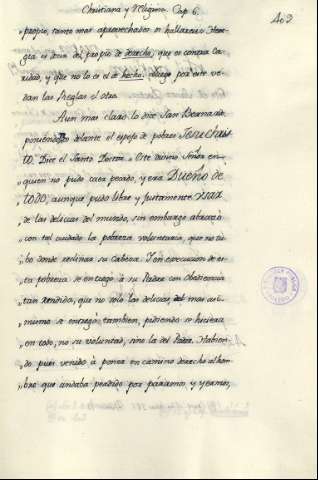 Christiana y Religiosa Cap. 6.
409
propio, tanto mas aprovechados se hallaran: Her-
gia es decir del propio de derecho, que es contra Ca-
ridad, y que no lo es el de hecho:
dan las Reglas el otro.
Aun mas claro lo dice San Bernardo
poniendo delante el espejo de pobres Jesu Chris
to. Dice el Santo Doctor: Este divino Señor en
quien no pudo caer pecado, y era Dueño de
todo, aunque pudo libre y justamente Usar
de las delicias del mundo, sin embargo abrazó
con tal cuidado la pobreza voluntaria, que no tu
bo donde reclinar su cabeza. Y en execucion de es
ta pobreza se entregó à su Padre con Obediencia
tan rendida, que no solo las delicias, del mas à si
mismo se entregó tambien, pidiendo se hiciera
en todo, no su voluntad, sino la del Padre. Habien
do pues venido à poner en camino derecho al hom
bre que andaba perdido por páramos y yermos,